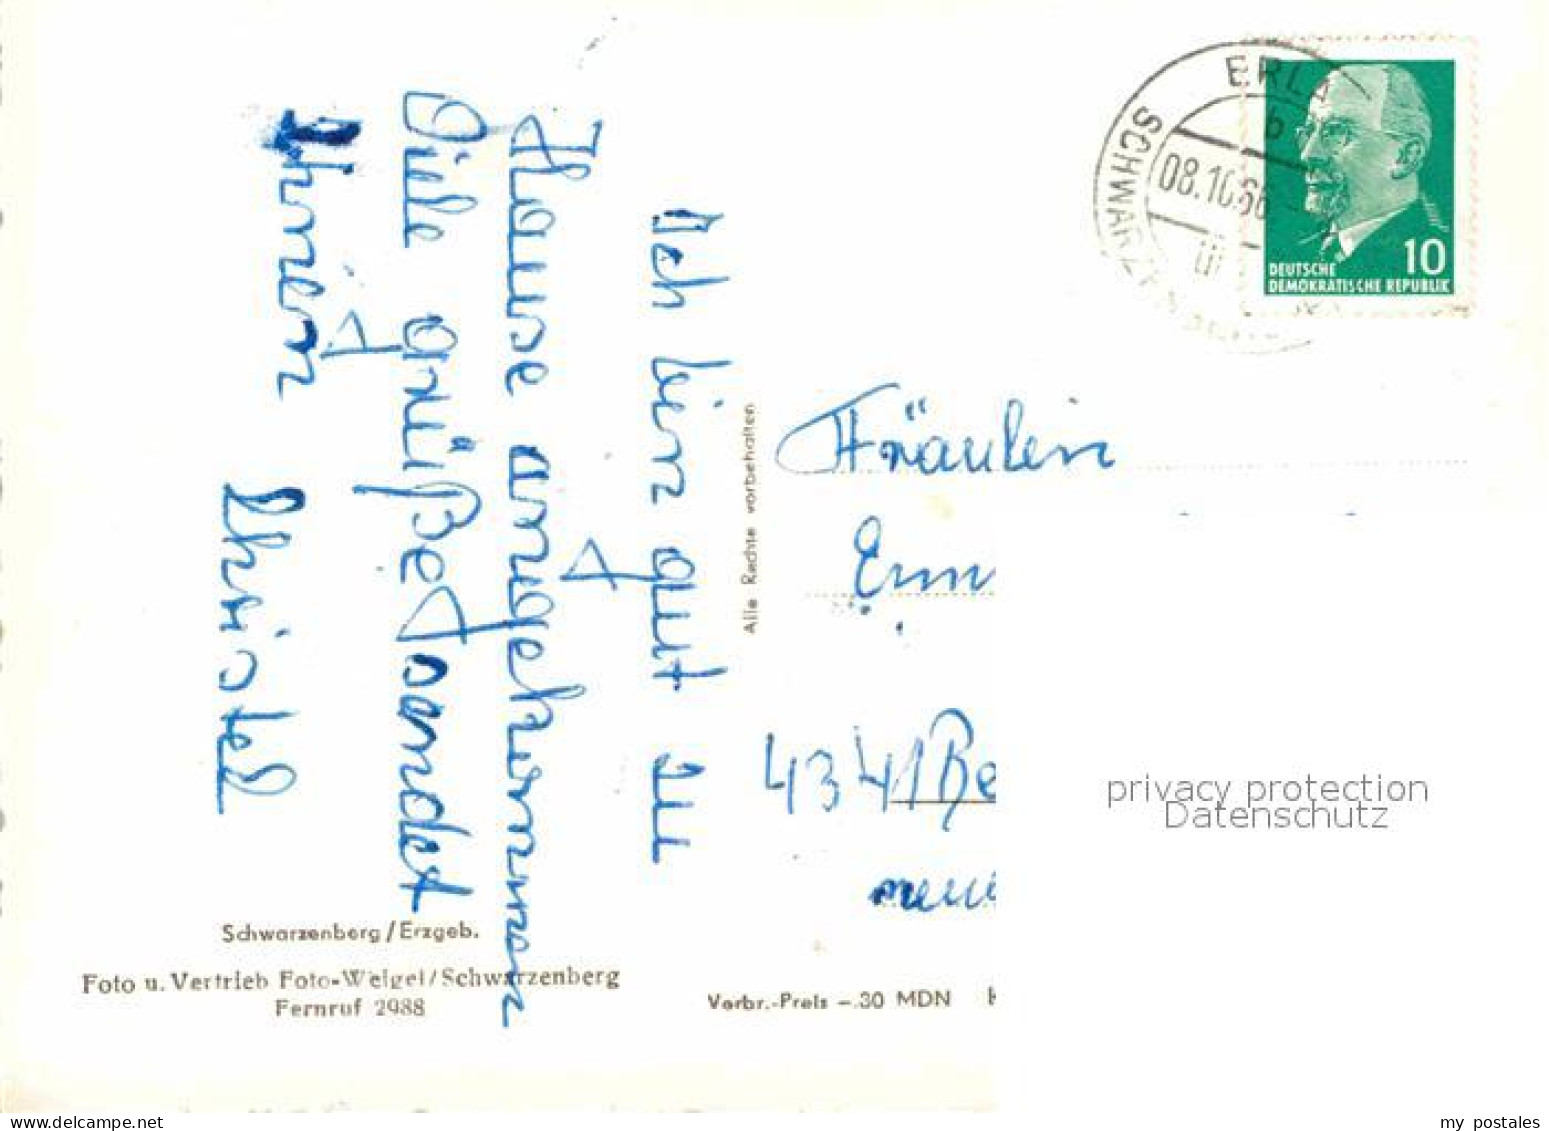 Ich bin gut zu
Hause angekommen
Viele Grüße sendet
Ihnen Christel
ERLA
b
08.10.66
SCHWARZENBERG
10
DEUTSCHE
DEMOKRATISCHE REPUBLIK
Alle Rechte vorbehalten
Fräulein
4341 Be
privacy protection
Datenschutz
Schwarzenberg/Erzgeb.
Foto u. Vertrieb Foto-Weigel/Schwarzenberg
Fernruf 2988
Verbr.-Preis –.30 MDN
my postales